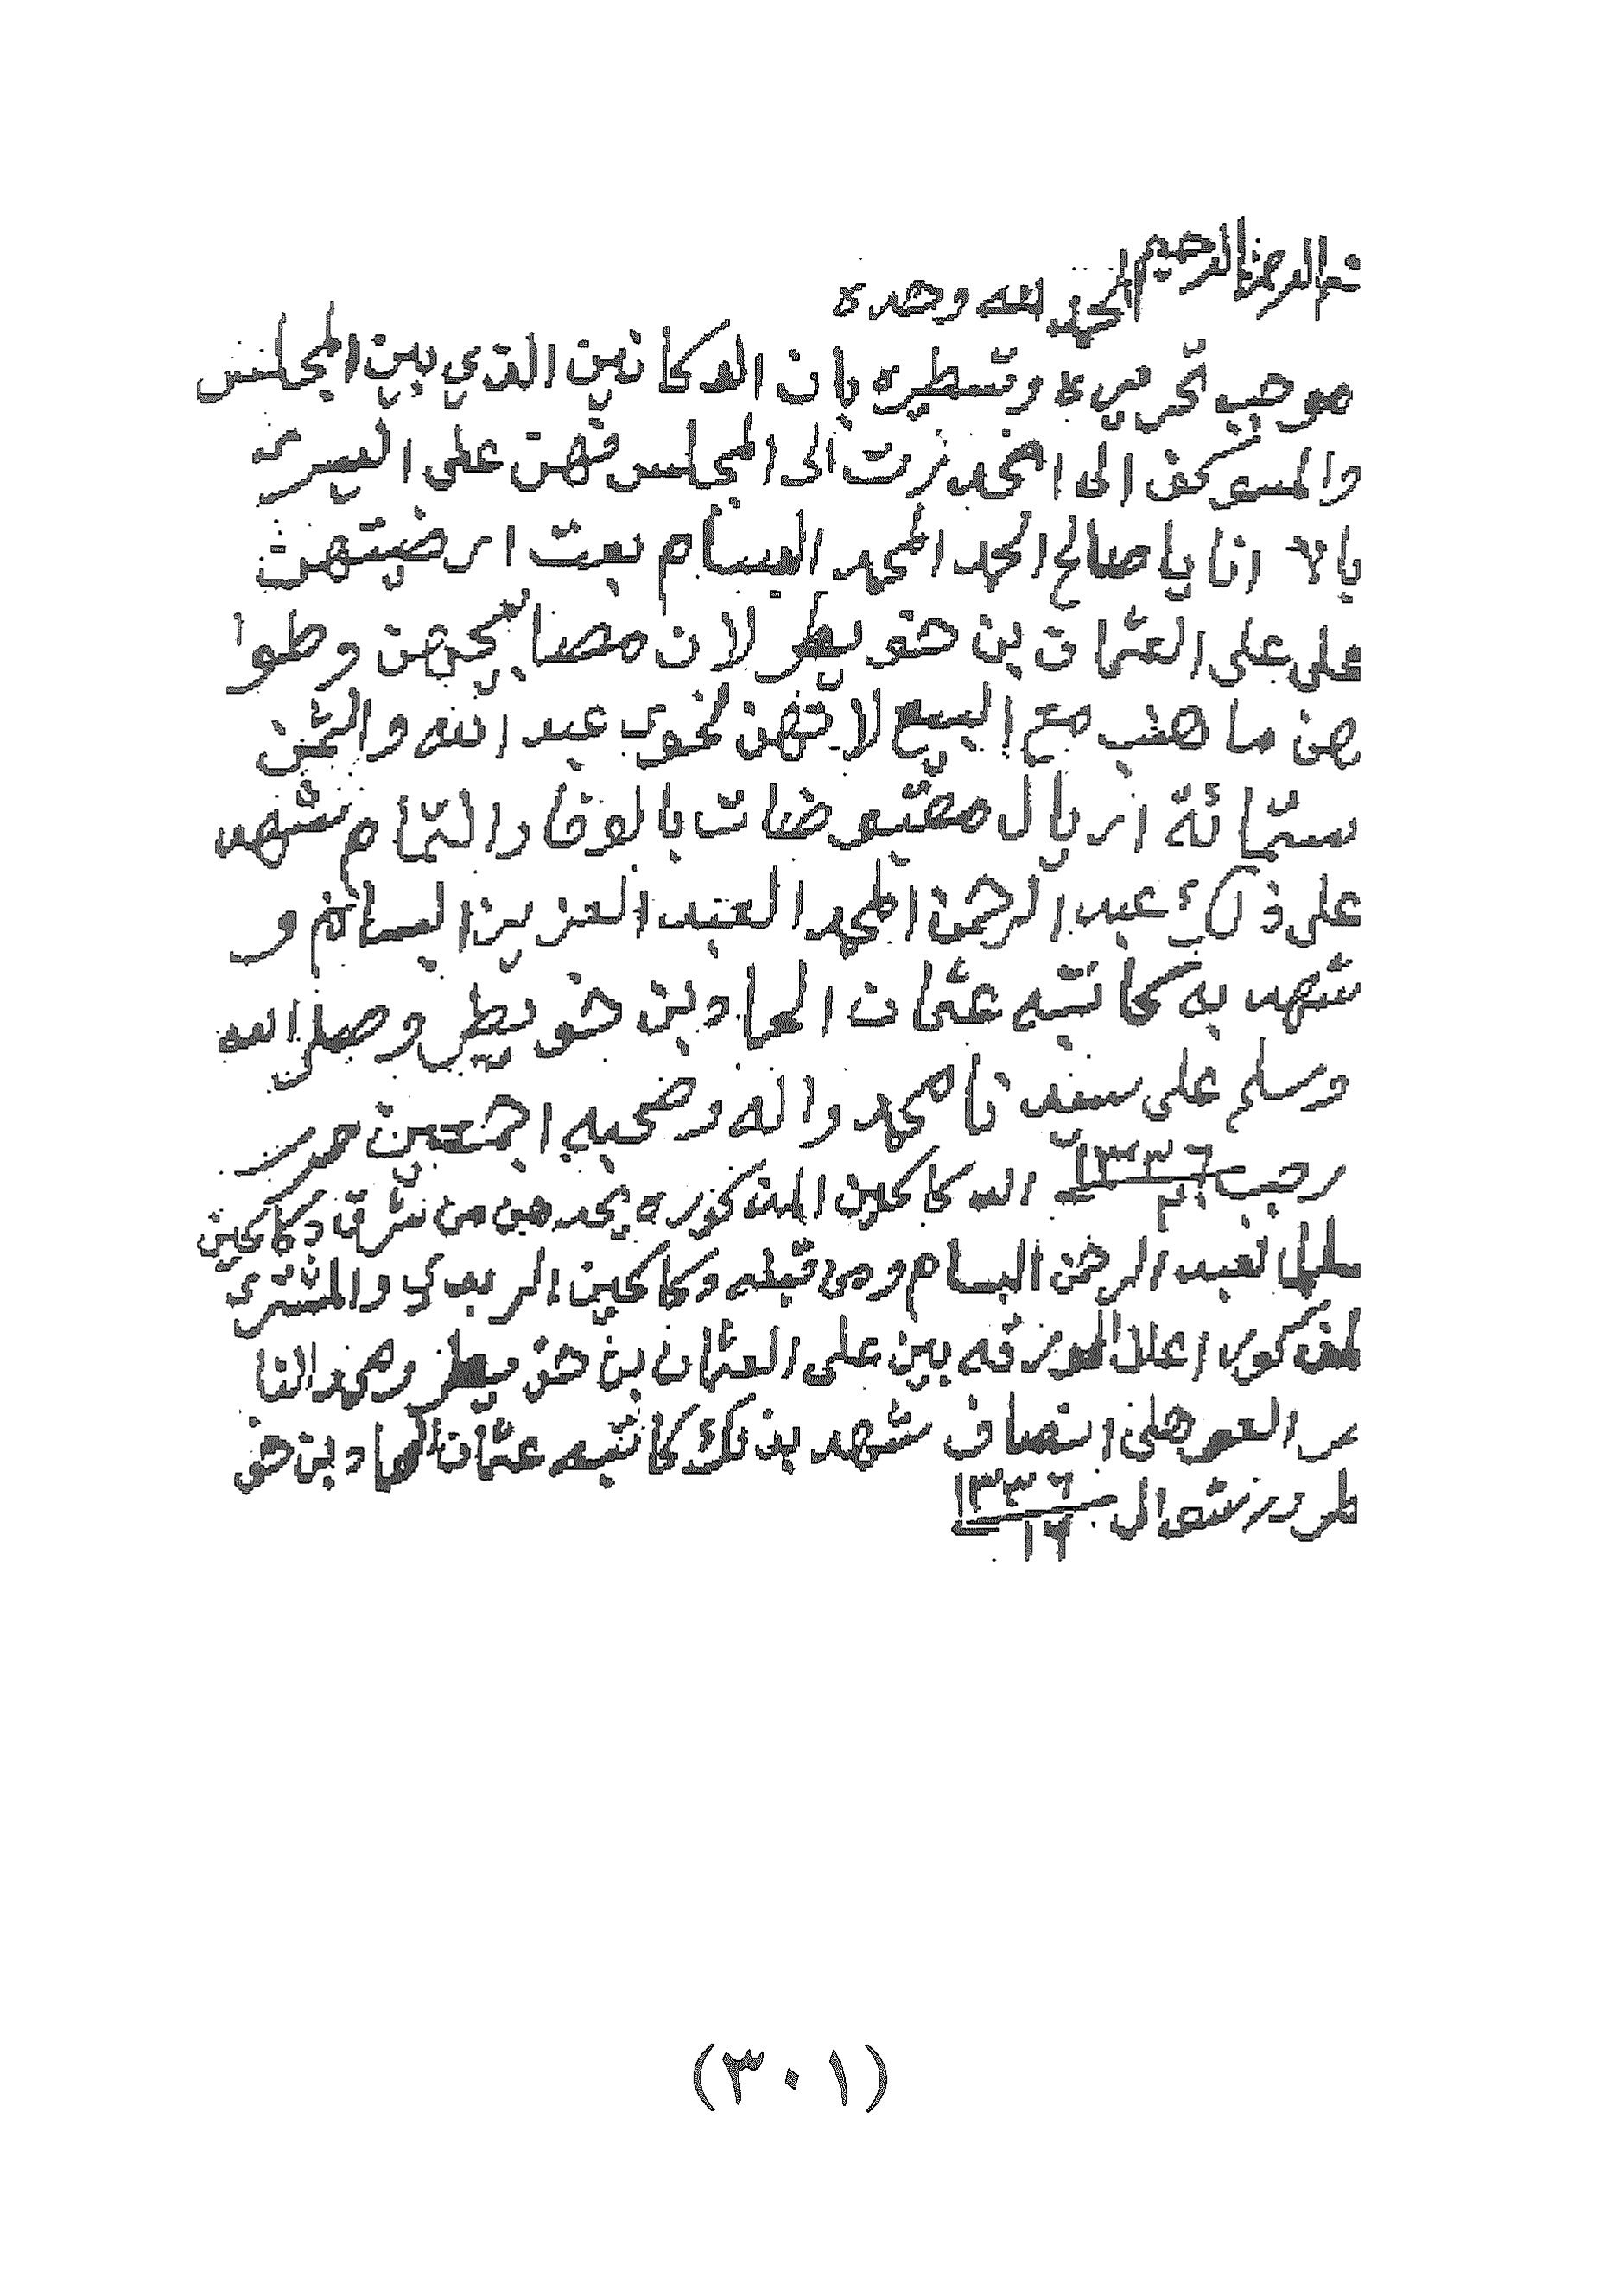 بسم الله الرحمن الرحيم
الحمد لله وحده
موجب تحريره وتسطيره بان الدكانين الذي بين المجلس
والمسوكف الى انحدرت الى المجلس فهن على اليسرى
بانه انا يا صالح الحمد المحمد البسام بعت ارضيتهن
على علي العثمان بن خويطر لان مصابيحهن وطوا
يهن ما هنب مع البيع لانهن لخوي عبد الله والثمن
ستمائة اريال مقبوضات بالوفا والتمام شهد
على ذلك عبد الرحمن المحمد العبد العزيز البسام و
شهد به كاتبه عثمان الحماد بن خويطر وصلى الله
وسلم على سيدنا محمد واله وصحبه اجمعين حرر
رجب ١٣٣٦ الدكاكين المذكوره يحدهن من شرق دكاكين
لعبد الرحمن البسام ومن قبله دكاكين الربدي والمشترى
المذكور اعلا بين علي العثمان بن خويطر ومحمد النا
صر العوهلي انصاف شهد بذلك كاتبه عثمان الحماد بن خو
يطر شوال ١٣٣٦
١٢
(٣٠١)